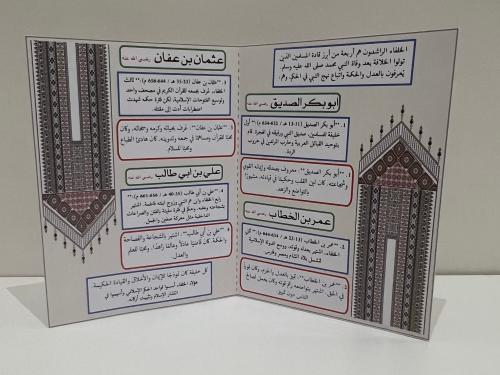 الخلفاء الراشدون هم أربعة من أبرز قادة المسلمين الذين
تولوا الخلافة بعد وفاة النبي محمد صلى الله عليه وسلم.
يُعرفون بالعدل والحكمة واتباع نهج النبي في الحكم. وهم:
أبو بكر الصديق رضي الله عنه
1. **أبو بكر الصديق** (11-13 هـ / 632-634 م):** أول
خليفة للمسلمين، صديق النبي ورفيقه في الهجرة. قام
بتوحيد القبائل العربية وحارب المرتدين في حروب
الردة.
1. **أبو بكر الصديق**: معروف بصدقه وإيمانه القوي
وشجاعته. كان لين القلب وحكيمًا في قيادته، مشهورًا
بالتواضع والزهد.
عمر بن الخطاب رضي الله عنه
2. **عمر بن الخطاب** (13-23 هـ / 634-644 م):** ثاني
الخلفاء، اشتهر بعدله وقوته. ووسع الدولة الإسلامية
لتشمل بلاد الشام ومصر وفارس.
2. **عمر بن الخطاب**: تميز بالعدل والحزم، وكان قويًا
في الحق. اشتهر بتواضعه رغم قوته وكان يعمل لصالح
الناس دون تمييز.
عثمان بن عفان رضي الله عنه
3. **عثمان بن عفان** (23-35 هـ / 644-656 م):** ثالث
الخلفاء، عُرف بجمعه للقرآن الكريم في مصحف واحد
وتوسيع الفتوحات الإسلامية، لكن فترة حكمه شهدت
اضطرابات أدت إلى مقتله.
3. **عثمان بن عفان**: عُرف بحيائه وكرمه وسخائه. وكان
محبًا للقرآن ومساهمًا في جمعه وتدوينه. كان هادئ الطباع
ومحبًا للسلام
علي بن أبي طالب رضي الله عنه
4. **علي بن أبي طالب** (35-40 هـ / 656-661 م):**
رابع الخلفاء وابن عم النبي وزوج ابنته فاطمة. اشتهر
بشجاعته وعلمه، وحكم في فترة مليئة بالفتن والصراعات
الداخلية مثل معركة صفين والجمل
4. **علي بن أبي طالب**: اشتهر بالشجاعة والفصاحة
والحكمة. كان قاضيًا عادلًا وعالمًا زاهدًا، ومحبًا للعلم
والعدل.
كل خليفة كان نموذجًا للإيمان والأخلاق والقيادة الحكيمة
هؤلاء الخلفاء أسسوا قواعد الحكم الإسلامي وأسهموا في
انتشار الإسلام وتثبيت أركانه.